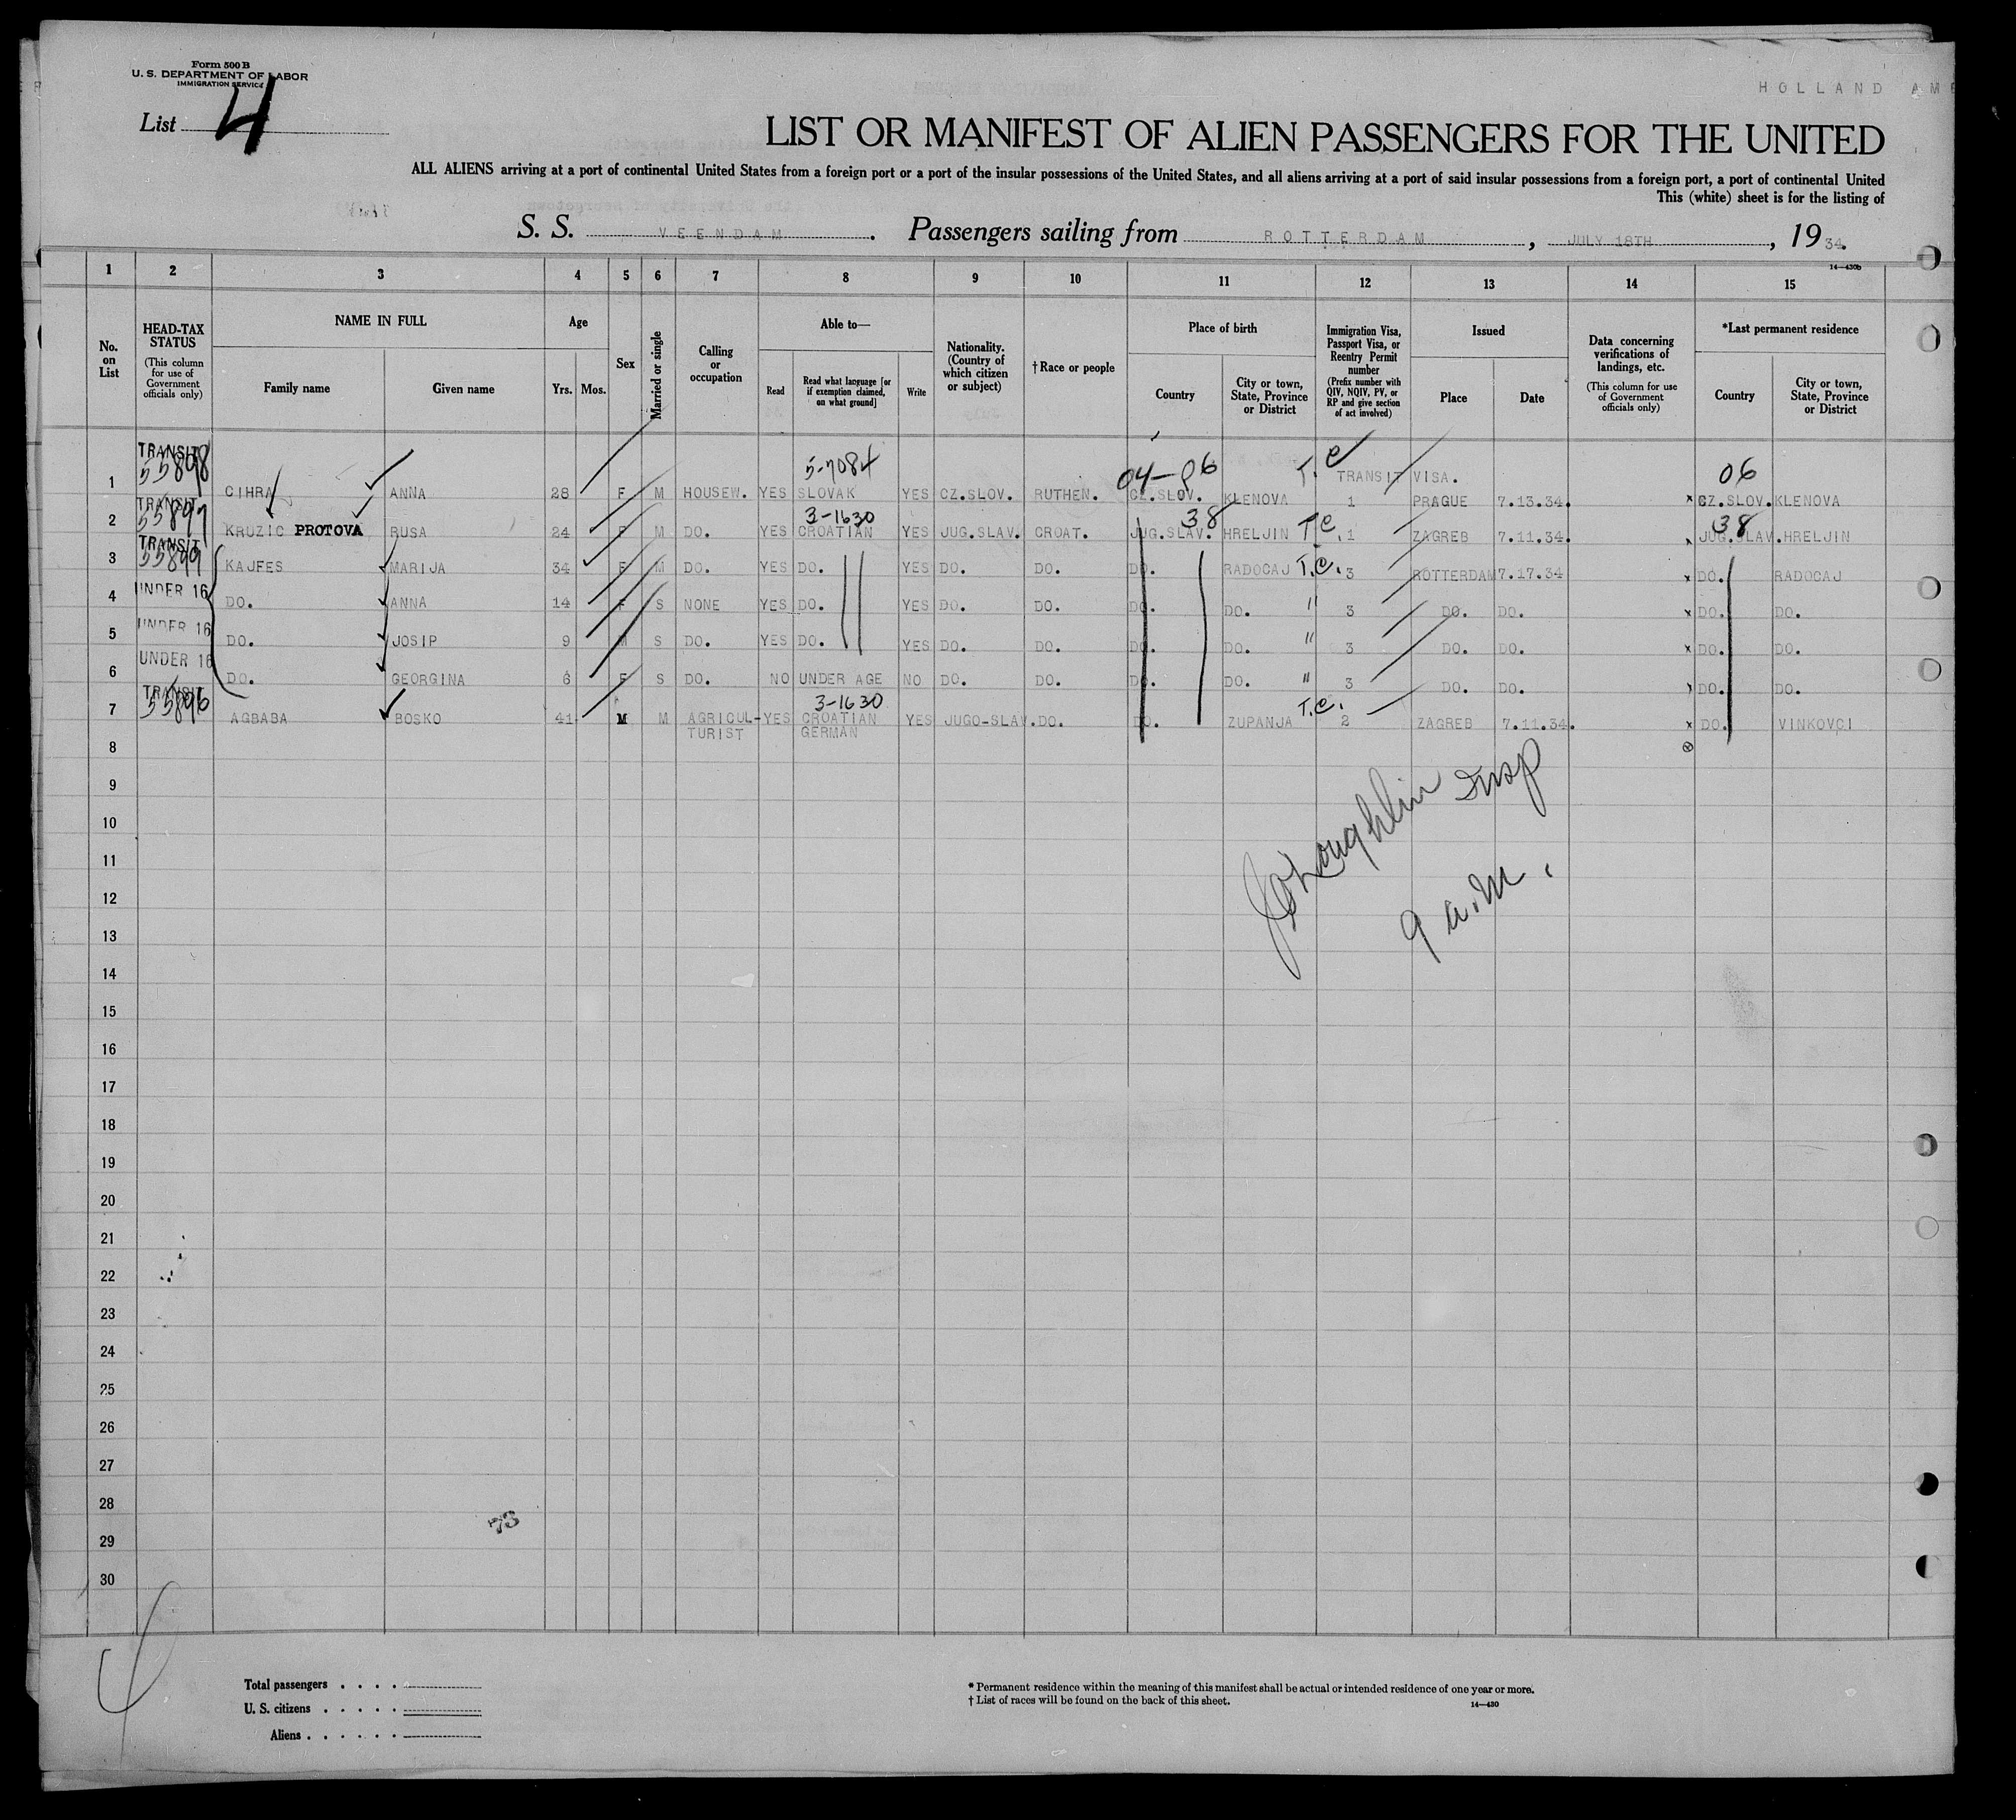 Form 500 B
U. S. DEPARTMENT OF LABOR
IMMIGRATION SERVICE
HOLLAND AME
List 4
LIST OR MANIFEST OF ALIEN PASSENGERS FOR THE UNITED
ALL ALIENS arriving at a port of continental United States from a foreign port or a port of the insular possessions of the United States, and all aliens arriving at a port of said insular possessions from a foreign port, a port of continental United
This (white) sheet is for the listing of
S. S. VEENDAM. Passengers sailing from ROTTERDAM, JULY 18TH, 1934.
14—430b
1 2 3 4 5 6 7 8 9 10 11 12 13 14 15
No. on List
HEAD-TAX STATUS (This column for use of Government officials only)
NAME IN FULL
Family name
Given name
Age
Yrs. Mos.
Sex
Married or single
Calling or occupation
Able to—
Read
Read what language [or if exemption claimed, on what ground]
Write
Nationality. (Country of which citizen or subject)
†Race or people
Place of birth
Country
City or town, State, Province or District
Immigration Visa, Passport Visa, or Reentry Permit number (Prefix number with QIV, NQIV, PV, or RP and give section of act involved)
Issued
Place
Date
Data concerning verifications of landings, etc. (This column for use of Government officials only)
*Last permanent residence
Country
City or town, State, Province or District
TRANSIT
55898 5-7084 04-06 T.C TRANSIT VISA. 06
1 CIHRA ANNA 28 F M HOUSEW. YES SLOVAK YES CZ.SLOV. RUTHEN. CZ.SLOV. KLENOVA 1 PRAGUE 7.13.34. x CZ.SLOV. KLENOVA
TRANSIT
55897 3-1630 38 T.C. 38
2 KRUZIC PROTOVA RUSA 24 F M DO. YES CROATIAN YES JUG.SLAV. CROAT. JUG.SLAV. HRELJIN 1 ZAGREB 7.11.34. x JUG.SLAV. HRELJIN
TRANSIT
55899 T.C.
3 KAJFES MARIJA 34 F M DO. YES DO. YES DO. DO. DO. RADOCAJ 3 ROTTERDAM 7.17.34 x DO. RADOCAJ
UNDER 16
4 DO. ANNA 14 F S NONE YES DO. YES DO. DO. DO. DO. " 3 DO. DO. x DO. DO.
UNDER 16
5 DO. JOSIP 9 M S DO. YES DO. YES DO. DO. DO. DO. " 3 DO. DO. x DO. DO.
UNDER 16
6 DO. GEORGINA 6 F S DO. NO UNDER AGE NO DO. DO. DO. DO. " 3 DO. DO. x DO. DO.
TRANSIT
55896 3-1630 T.C.
7 AGBABA BOSKO 41 M M AGRICUL- YES CROATIAN YES JUGO-SLAV. DO. DO. ZUPANJA 2 ZAGREB 7.11.34. x DO. VINKOVCI
TURIST GERMAN
8
9
10
11
12
13
14
15
16
17
18
19
20
21
22
23
24
25
26
27
28
29
30
Loughlin Insp
9 a.m.
73
Total passengers . . . .
U. S. citizens . . . . .
Aliens . . . . . .
* Permanent residence within the meaning of this manifest shall be actual or intended residence of one year or more.
† List of races will be found on the back of this sheet. 14—430